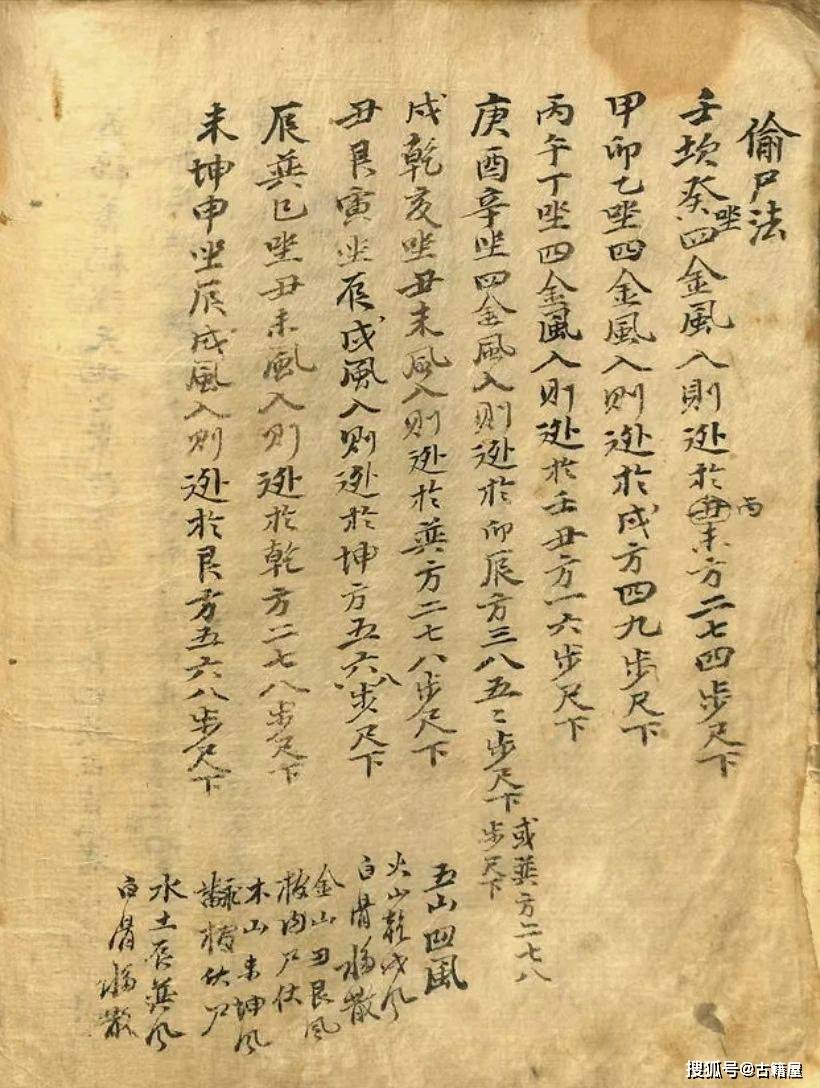 偷尸法
壬坎癸坐四金風入則逊於丑未方二七四步尺下
丙
甲卯乙坐四金風入則逊於戌方四九步尺下
丙午丁坐四金風入則逊於壬丑方一六步尺下
庚酉辛坐四金風入則逊於卯辰方三八五二步尺下
或巽方二七八
步尺下
戌乾亥坐丑未風入則逊於巽方二七八步尺下
丑艮寅坐辰戌風入則逊於坤方五六八步尺下
辰巽巳坐丑未風入則逊於乾方二七八步尺下
未坤申坐辰戌風入則逊於艮方五六八步尺下
五山四風
火山乾戌風
白骨散
金山丑艮風
板內尸伏
木山未坤風
板伏尸
水土辰巽風
白骨散
搜狐号@古籍屋